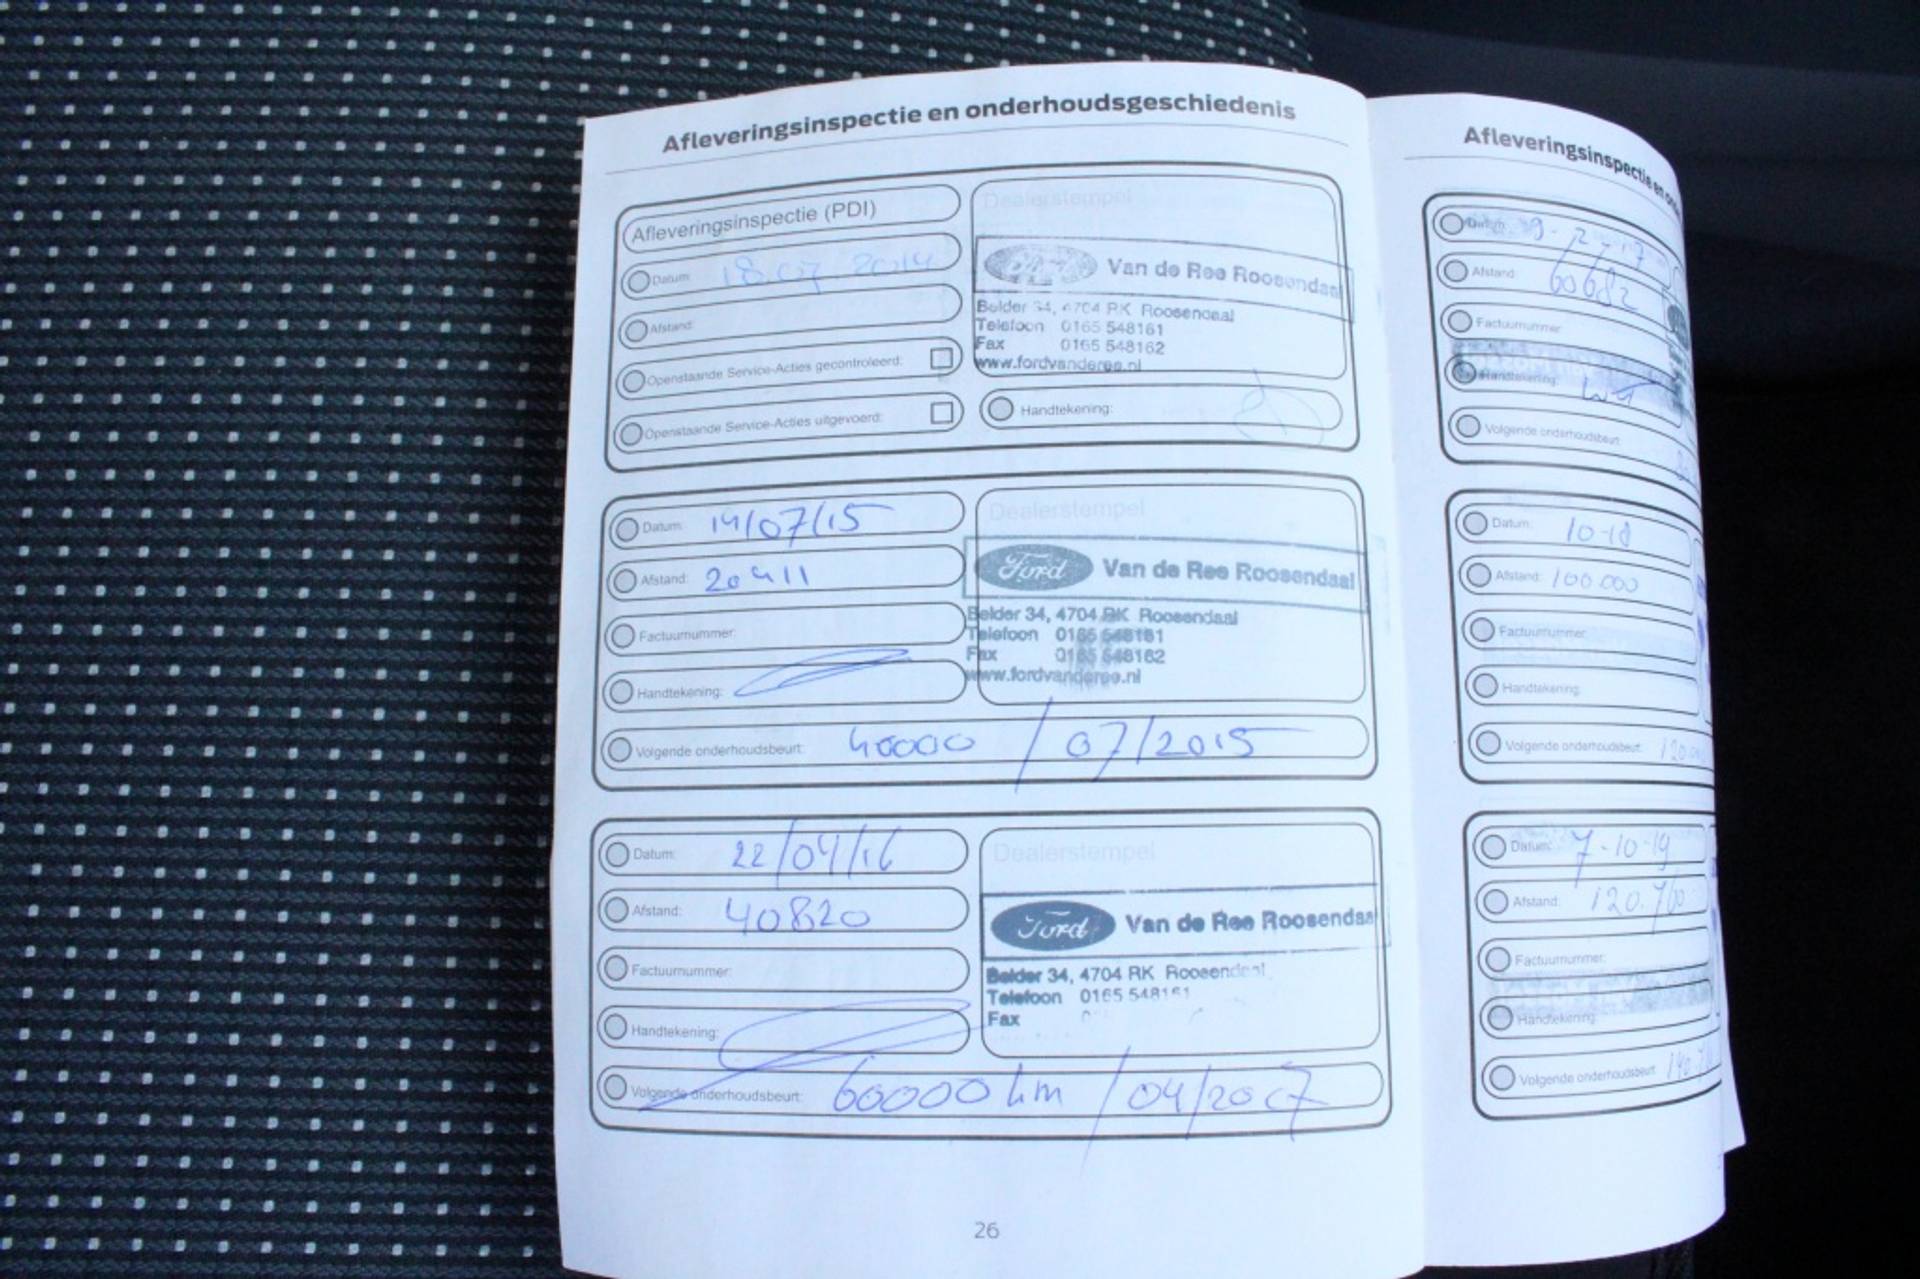 Afleveringsinspectie en onderhoudsgeschiedenis
Afleveringsinspectie (PDI)
Datum: 18.07.2014
Afstand:
Openstaande Service-Acties gecontroleerd:
Openstaande Service-Acties uitgevoerd:
Dealerstempel
Van de Ree Roosendaal
Belder 34, 4704 RK Roosendaal
Telefoon 0165 548161
Fax 0165 548162
www.fordvanderee.nl
Handtekening:
Datum: 14/07/15
Afstand: 20411
Factuurnummer:
Handtekening:
Dealerstempel
Ford Van de Ree Roosendaal
Belder 34, 4704 RK Roosendaal
Telefoon 0165 548161
Fax 0165 548162
www.fordvanderee.nl
Volgende onderhoudsbeurt: 40000 / 07/2015
Datum: 22/04/16
Afstand: 40820
Factuurnummer:
Handtekening:
Dealerstempel
Ford Van de Ree Roosendaa
Belder 34, 4704 RK Roosendaal
Telefoon 0165 548161
Fax
Volgende onderhoudsbeurt: 60000 km / 04/2017
26
Afleveringsinspectie en
Datum: 9-2-17
Afstand: 60682
Factuurnummer
Handtekening:
Volgende onderhoudsbeurt:
Datum: 10-18
Afstand: 100.000
Factuurnummer:
Handtekening:
Volgende onderhoudsbeurt:
Datum: 7-10-19
Afstand: 120.7
Factuurnummer:
Handtekening:
Volgende onderhoudsbeurt: